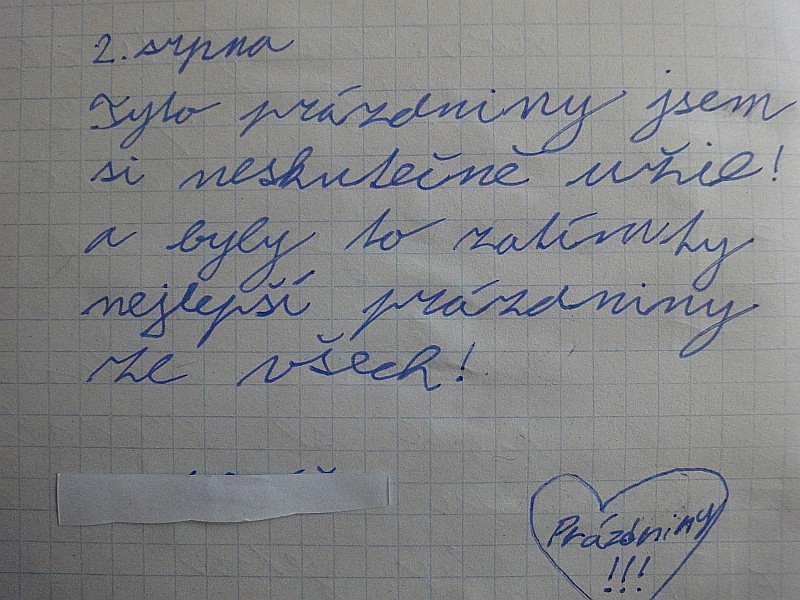 2. srpna
Tyto prázdniny jsem
si neskutečně užil!
a byly to zatím ty
nejlepší prázdniny
ze všech!
Prázdniny
!!!